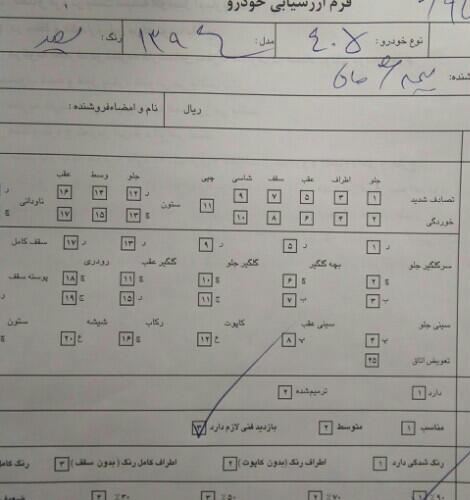 فرم ارزسیابی خودرو
نوع خودرو: ۴۰۵ مدل: ۱۳۹۰ رنگ: سفید
شنده:
ریال نام و امضاء فروشنده:
جلو اطراف عقب سقف شاسی چپی جلو وسط عقب
تصادف شدید ۱ ۳ ۵ ۷ ۹ ۱۱ ستون ر ۱۲ ۱۴ ۱۶ ناودانی ر
خوردگی ۲ ۴ ۶ ۸ ۱۰ چ ۱۳ ۱۵ ۱۷ چ
سرگلگیر جلو ر ۱ بچه گلگیر ر ۵ گلگیر جلو ر ۹ گلگیر عقب ر ۱۳ رودری ر ۱۷ سقف کامل
چ ۲ چ ۶ چ ۱۰ چ ۱۱ چ ۱۸ پوسته سقف
پ ۳ پ ۷ چ ۱۱ ر ۱۵ چ ۱۹ ر
سینی جلو پ ۴ سینی عقب پ ۸ کاپوت ع ۱۲ رکاب چ ۱۶ شیشه ع ۲۰ ستون چ
تعویض اتاق ۲۵
دارد ۱ ترمیم شده ۲
مناسب ۱ متوسط ۲ بازدید فنی لازم دارد ۳
رنگ شدگی دارد ۱ اطراف رنگ (بدون کاپوت) ۲ اطراف کامل رنگ (بدون سقف) ۳ رنگ کامل
٪۹۰ ۱ ٪۷۰ ۲ ٪۵۰ ۳ ٪۳۰ ۴ ضعیف